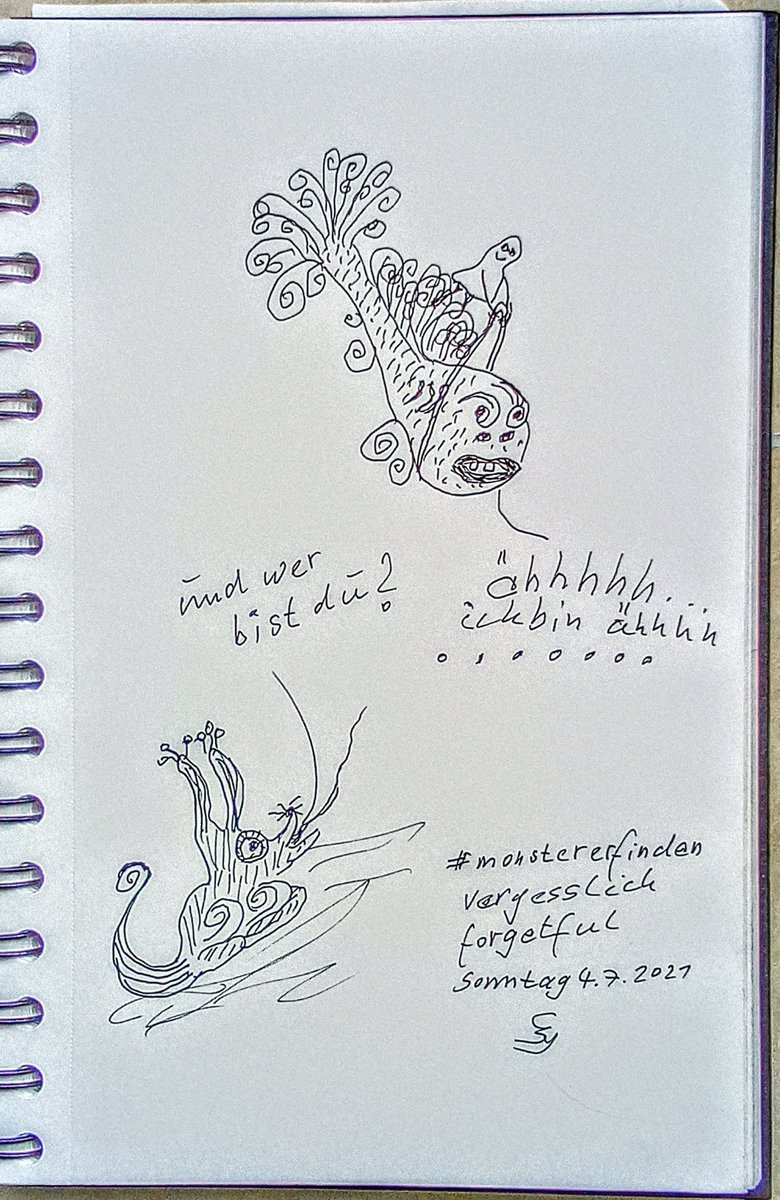 und wer
bist du?
ähhhhh...
ich bin ähhhh
.......
#monstererfinden
vergesslich
forgetful
Sonntag 4.7.2021